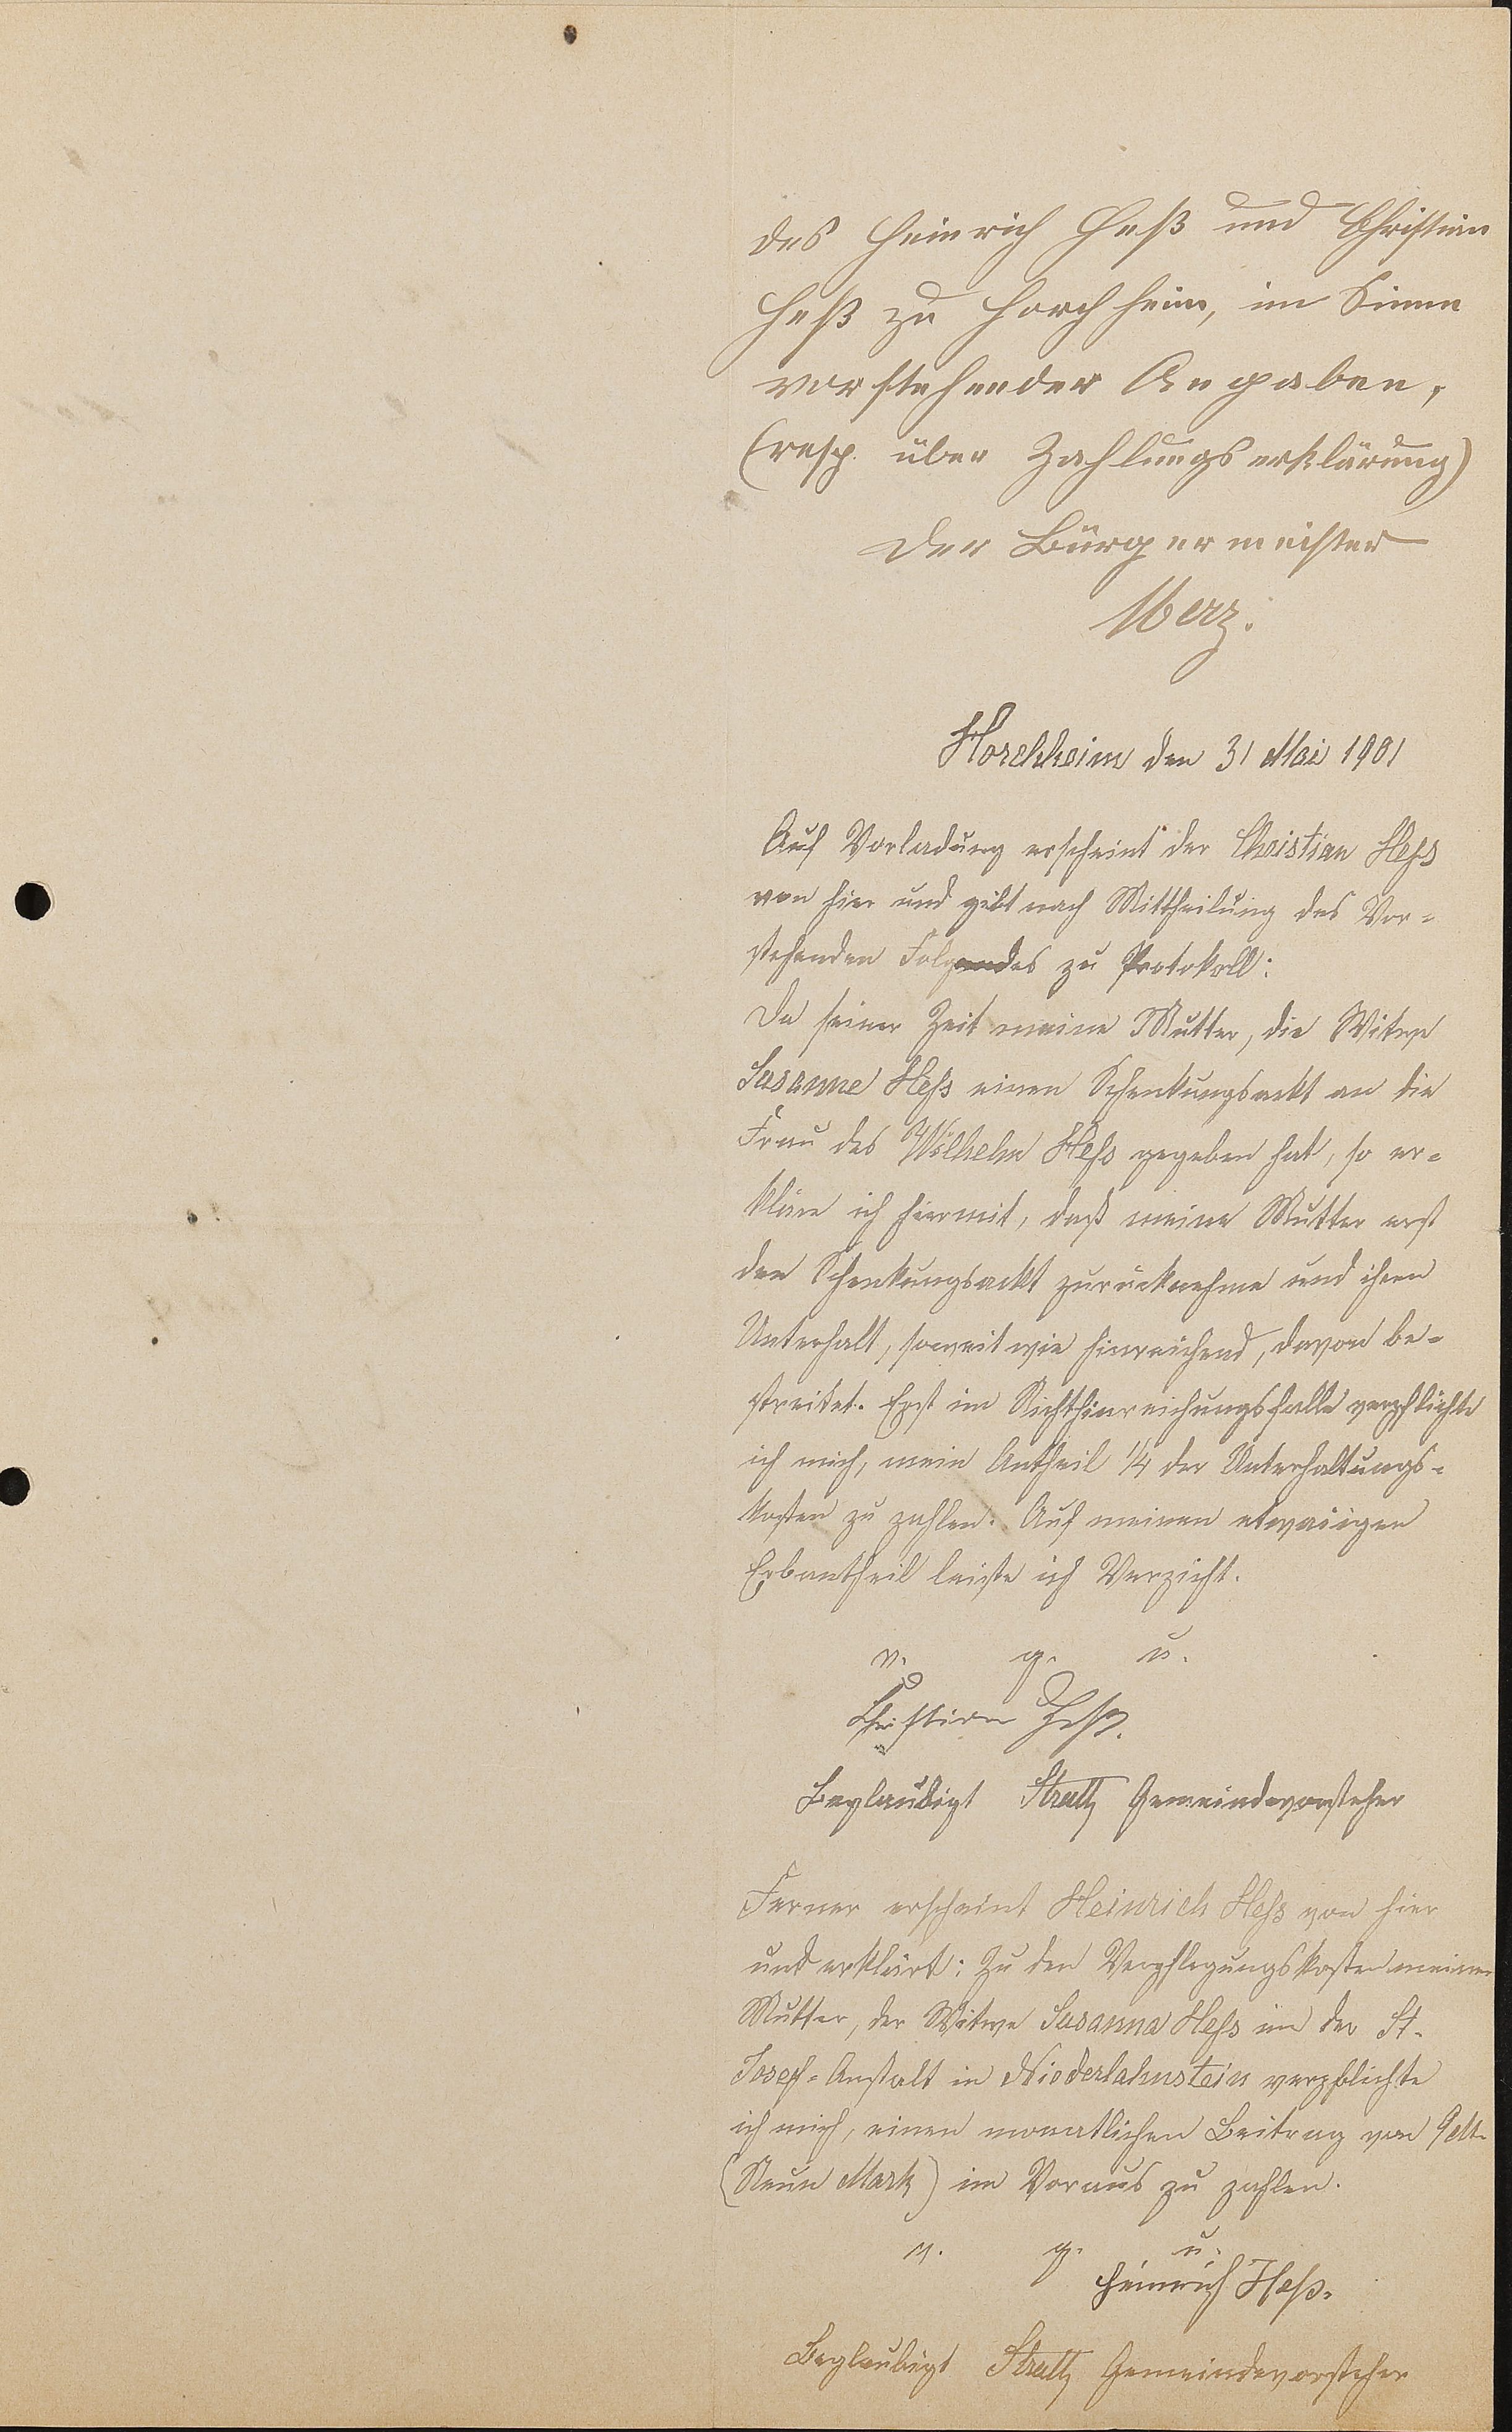 des Heinrich Heß und Christian
Heß zu Horchheim, im Sinne
vorstehender Angaben,
(resp. über Zahlungserklärung)
Der Bürgermeister
Merz.
Horchheim den 31 Mai 1901
Auf Vorladung erscheint der Christian Heß
von hier und gibt nach Mittheilung des Vor-
stehenden Folgendes zu Protokoll:
Da seiner Zeit meine Mutter, die Witwe
Susanne Heß einen Schenkungsackt an die
Frau des Wilhelm Heß gegeben hat, so er-
kläre ich hiermit, daß meine Mutter erst
den Schenkungsackt zurücknehme und ihren
Unterhalt, soweit wie hinreichend, davon be-
streitet. Erst im Nichthinreichungsfalle verpflichte
ich mich, mein Antheil 1/4 der Unterhaltungs-
kosten zu zahlen. Auf meinen etwaiigen
Erbantheil leiste ich Verzicht.
v. g. u.
Christian Heß.
Beglaubigt Strutz Gemeindevorsteher
Ferner erscheint Heinrich Heß von hier
und erklärt: Zu den Verpflegungskosten meiner
Mutter, der Witwe Susanna Heß in der St.
Josef-Anstalt in Niederlahnstein verpflichte
ich mich, einen monatlichen Beitrag von 9 M.
(Neun Mark) im Voraus zu zahlen.
v. g. u.
Heinrich Heß.
Beglaubigt Strutz Gemeindevorsteher